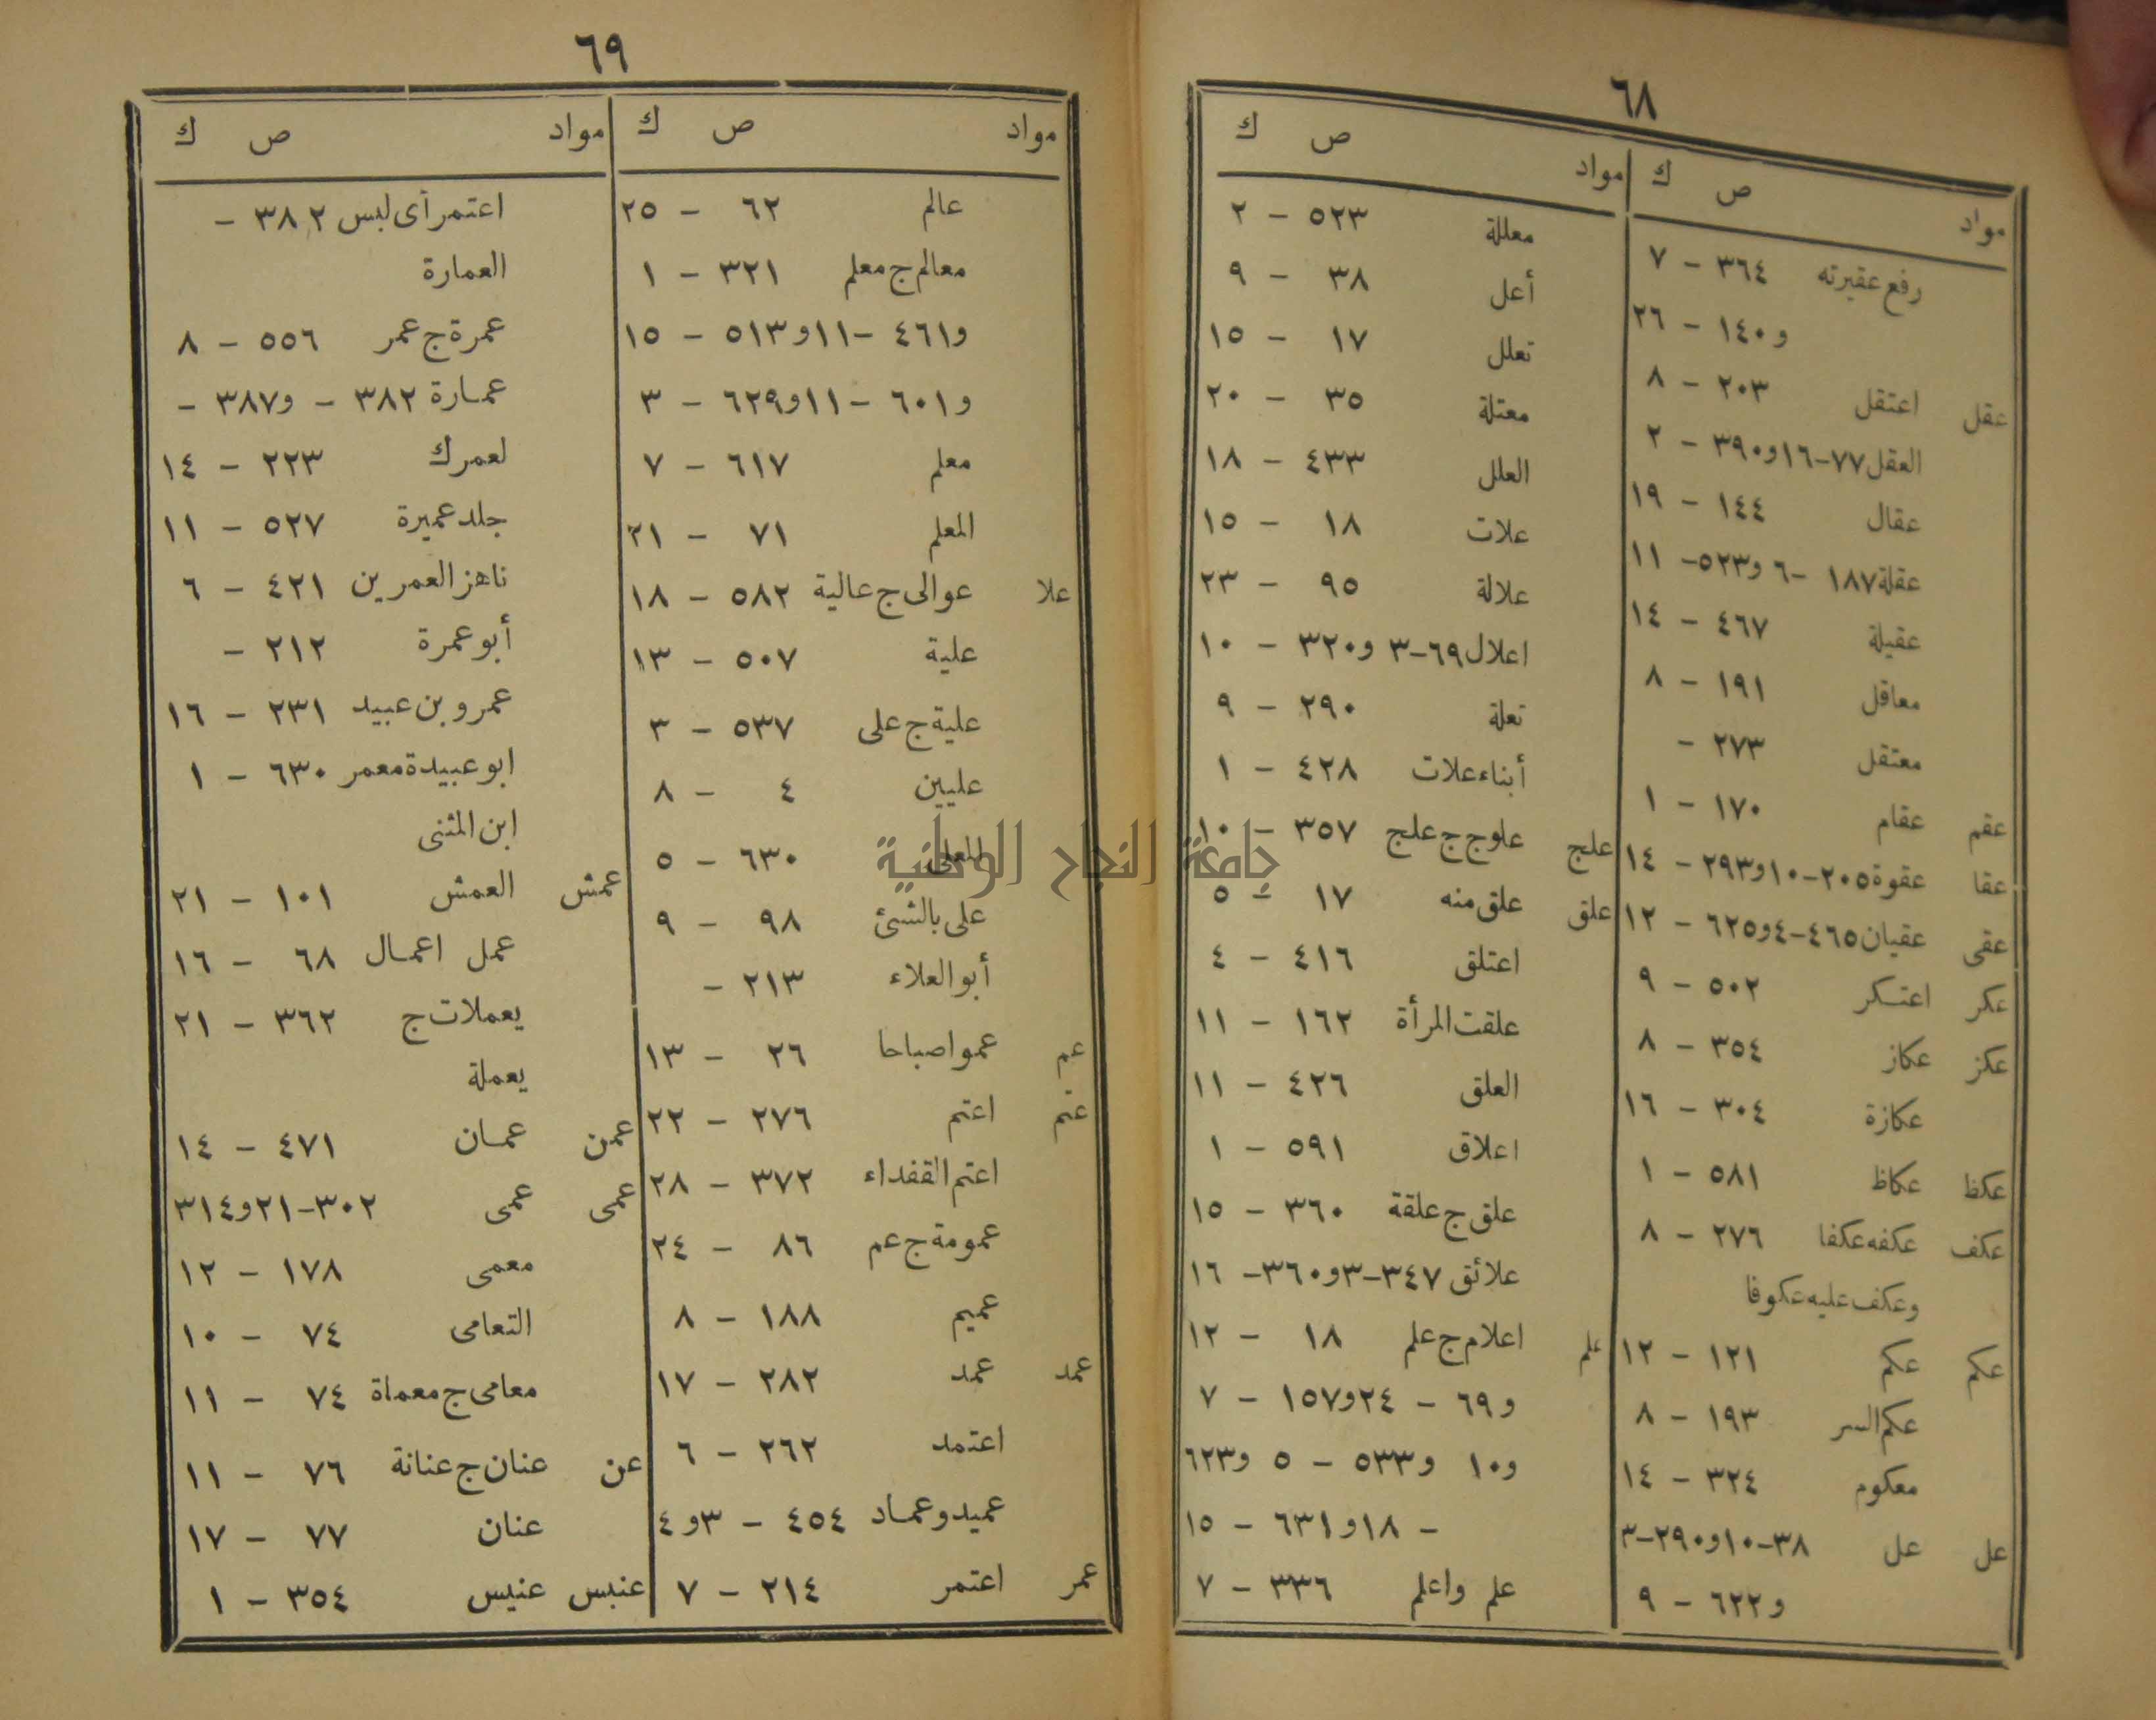 ٦٨
مواد ص ك
رفع عقيرته ٣٦٤ - ٧
و١٤٠ - ٢٦
عقل اعتقل ٢٠٣ - ٨
العقل ٧٧-١٦و٣٩٠ - ٢
عقال ١٤٤ - ١٩
عقلة ١٨٧ -٦ و٥٢٣- ١١
عقيلة ٤٦٧ - ١٤
معاقل ١٩١ - ٨
معتقل ٢٧٣ -
عقم عقام ١٧٠ - ١
عقا عقوة ٢٠٥-١٠و٢٩٣ - ١٤
عقى عقيان ٤٦٥-٤و٦٢٥ - ١٢
عكر اعتكر ٥٠٢ - ٩
عكز عكاز ٣٥٤ - ٨
عكازة ٣٠٤ - ١٦
عكظ عكاظ ٥٨١ - ١
عكف عكفه عكفا ٢٧٦ - ٨
وعكف عليه عكوفا
عكم عكم ١٢١ - ١٢
عكم السر ١٩٣ - ٨
معكوم ٣٢٤ - ١٤
عل عل ٣٨-١٠و٢٩٠-٣
و٦٢٢ - ٩
مواد ص ك
معللة ٥٢٣ - ٢
أعل ٣٨ - ٩
تعلل ١٧ - ١٥
معتلة ٣٥ - ٢٠
العلل ٤٣٣ - ١٨
علات ١٨ - ١٥
علالة ٩٥ - ٢٣
اعلال ٦٩-٣ و٣٢٠ - ١٠
تعلة ٢٩٠ - ٩
أبناء علات ٤٢٨ - ١
علج علوج ج علج ٣٥٧ - ١٠
علق علق منه ١٧ - ٥
اعتلق ٤١٦ - ٤
علقت المرأة ١٦٢ - ١١
العلق ٤٢٦ - ١١
اعلاق ٥٩١ - ١
علق ج علقة ٣٦٠ - ١٥
علائق ٣٤٧-٣و٣٦٠- ١٦
علم اعلام ج علم ١٨ - ١٢
و٦٩ - ٢٤و١٥٧ - ٧
و١٠ و٥٣٣ - ٥ و٦٢٣
- ١٨و٦٣١ - ١٥
علم واعلم ٣٣٦ - ٧
٦٩
مواد ص ك
عالم ٦٢ - ٢٥
معالم ج معلم ٣٢١ - ١
و٤٦١ -١١و٥١٣ - ١٥
و٦٠١ -١١و٦٢٩ - ٣
معلم ٦١٧ - ٧
المعلم ٧١ - ٢١
علا عوالى ج عالية ٥٨٢ - ١٨
علية ٥٠٧ - ١٣
علية ج على ٥٣٧ - ٣
عليين ٤ - ٨
المعلى ٦٣٠ - ٥
على بالشئ ٩٨ - ٩
أبو العلاء ٢١٣ -
عم عموا صباحا ٢٦ - ١٣
عتم اعتم ٢٧٦ - ٢٢
اعتم القفداء ٣٧٢ - ٢٨
عمومة ج عم ٨٦ - ٢٤
عميم ١٨٨ - ٨
عمد عمد ٢٨٢ - ١٧
اعتمد ٢٦٢ - ٦
عميد وعماد ٤٥٤ - ٣و٤
عمر اعتمر ٢١٤ - ٧
مواد ص ك
اعتمر أى لبس ٣٨٢ -
العمارة
عمرة ج عمر ٥٥٦ - ٨
عمارة ٣٨٢ - و٣٨٧ -
لعمرك ٢٢٣ - ١٤
جلد عميرة ٥٢٧ - ١١
ناهز العمرين ٤٢١ - ٦
أبو عمرة ٢١٢ -
عمرو بن عبيد ٢٣١ - ١٦
ابو عبيدة معمر ٦٣٠ - ١
ابن المثنى
عمش العمش ١٠١ - ٢١
عمل اعمال ٦٨ - ١٦
يعملات ج ٣٦٢ - ٢١
يعملة
عمن عمان ٤٧١ - ١٤
عمى عمى ٣٠٢-٢١و٣١٤
معمى ١٧٨ - ١٢
التعامى ٧٤ - ١٠
معامى ج معماة ٧٤ - ١١
عن عنان ج عنانة ٧٦ - ١١
عنان ٧٧ - ١٧
عنبس عنبس ٣٥٤ - ١
جامعة النجاح الوطنية